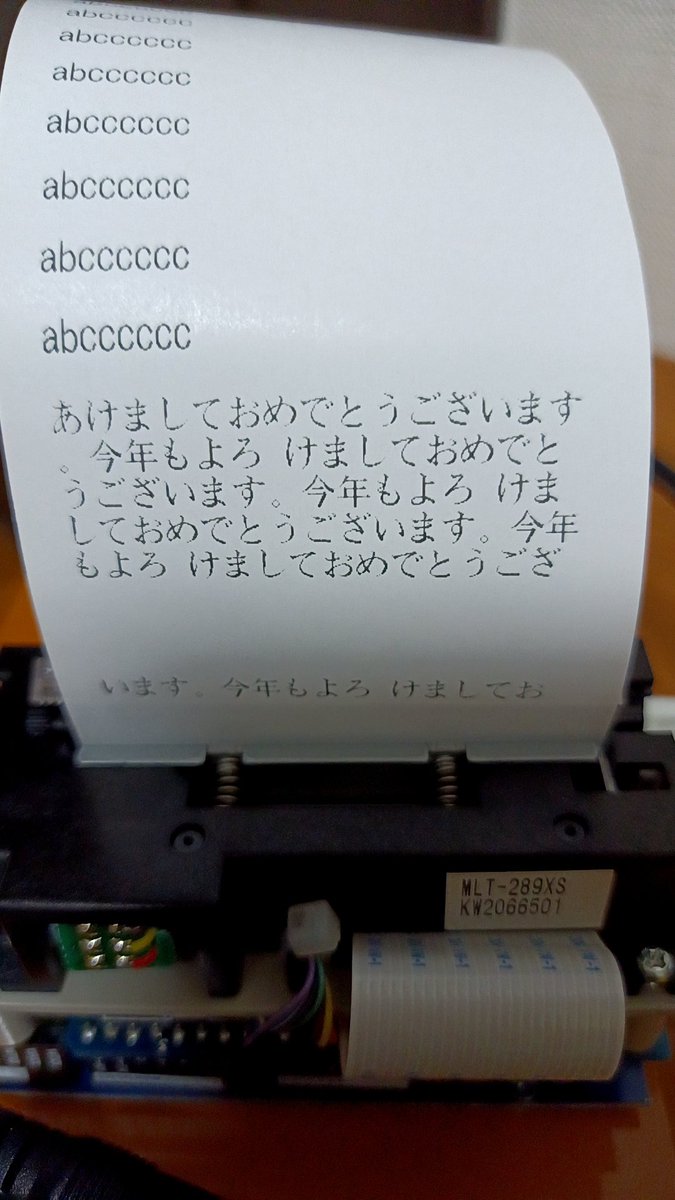 abcccccc
abcccccc
abcccccc
abcccccc
abcccccc
abcccccc
abcccccc
あけましておめでとうございます
。今年もよろ けましておめでと
うございます。今年もよろ けま
しておめでとうございます。今年
もよろ けましておめでとうござ
います。今年もよろ けましてお
MLT-289XS
KW2066501